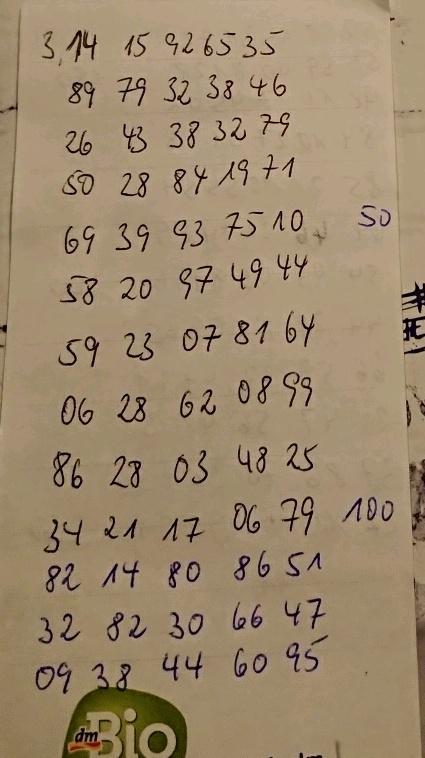 3,14 15 92 65 35
89 79 32 38 46
26 43 38 32 79
50 28 84 19 71
69 39 93 75 10 50
58 20 97 49 44
59 23 07 81 64
06 28 62 08 99
86 28 03 48 25
34 21 17 06 79 100
82 14 80 86 51
32 82 30 66 47
09 38 44 60 95
dm Bio